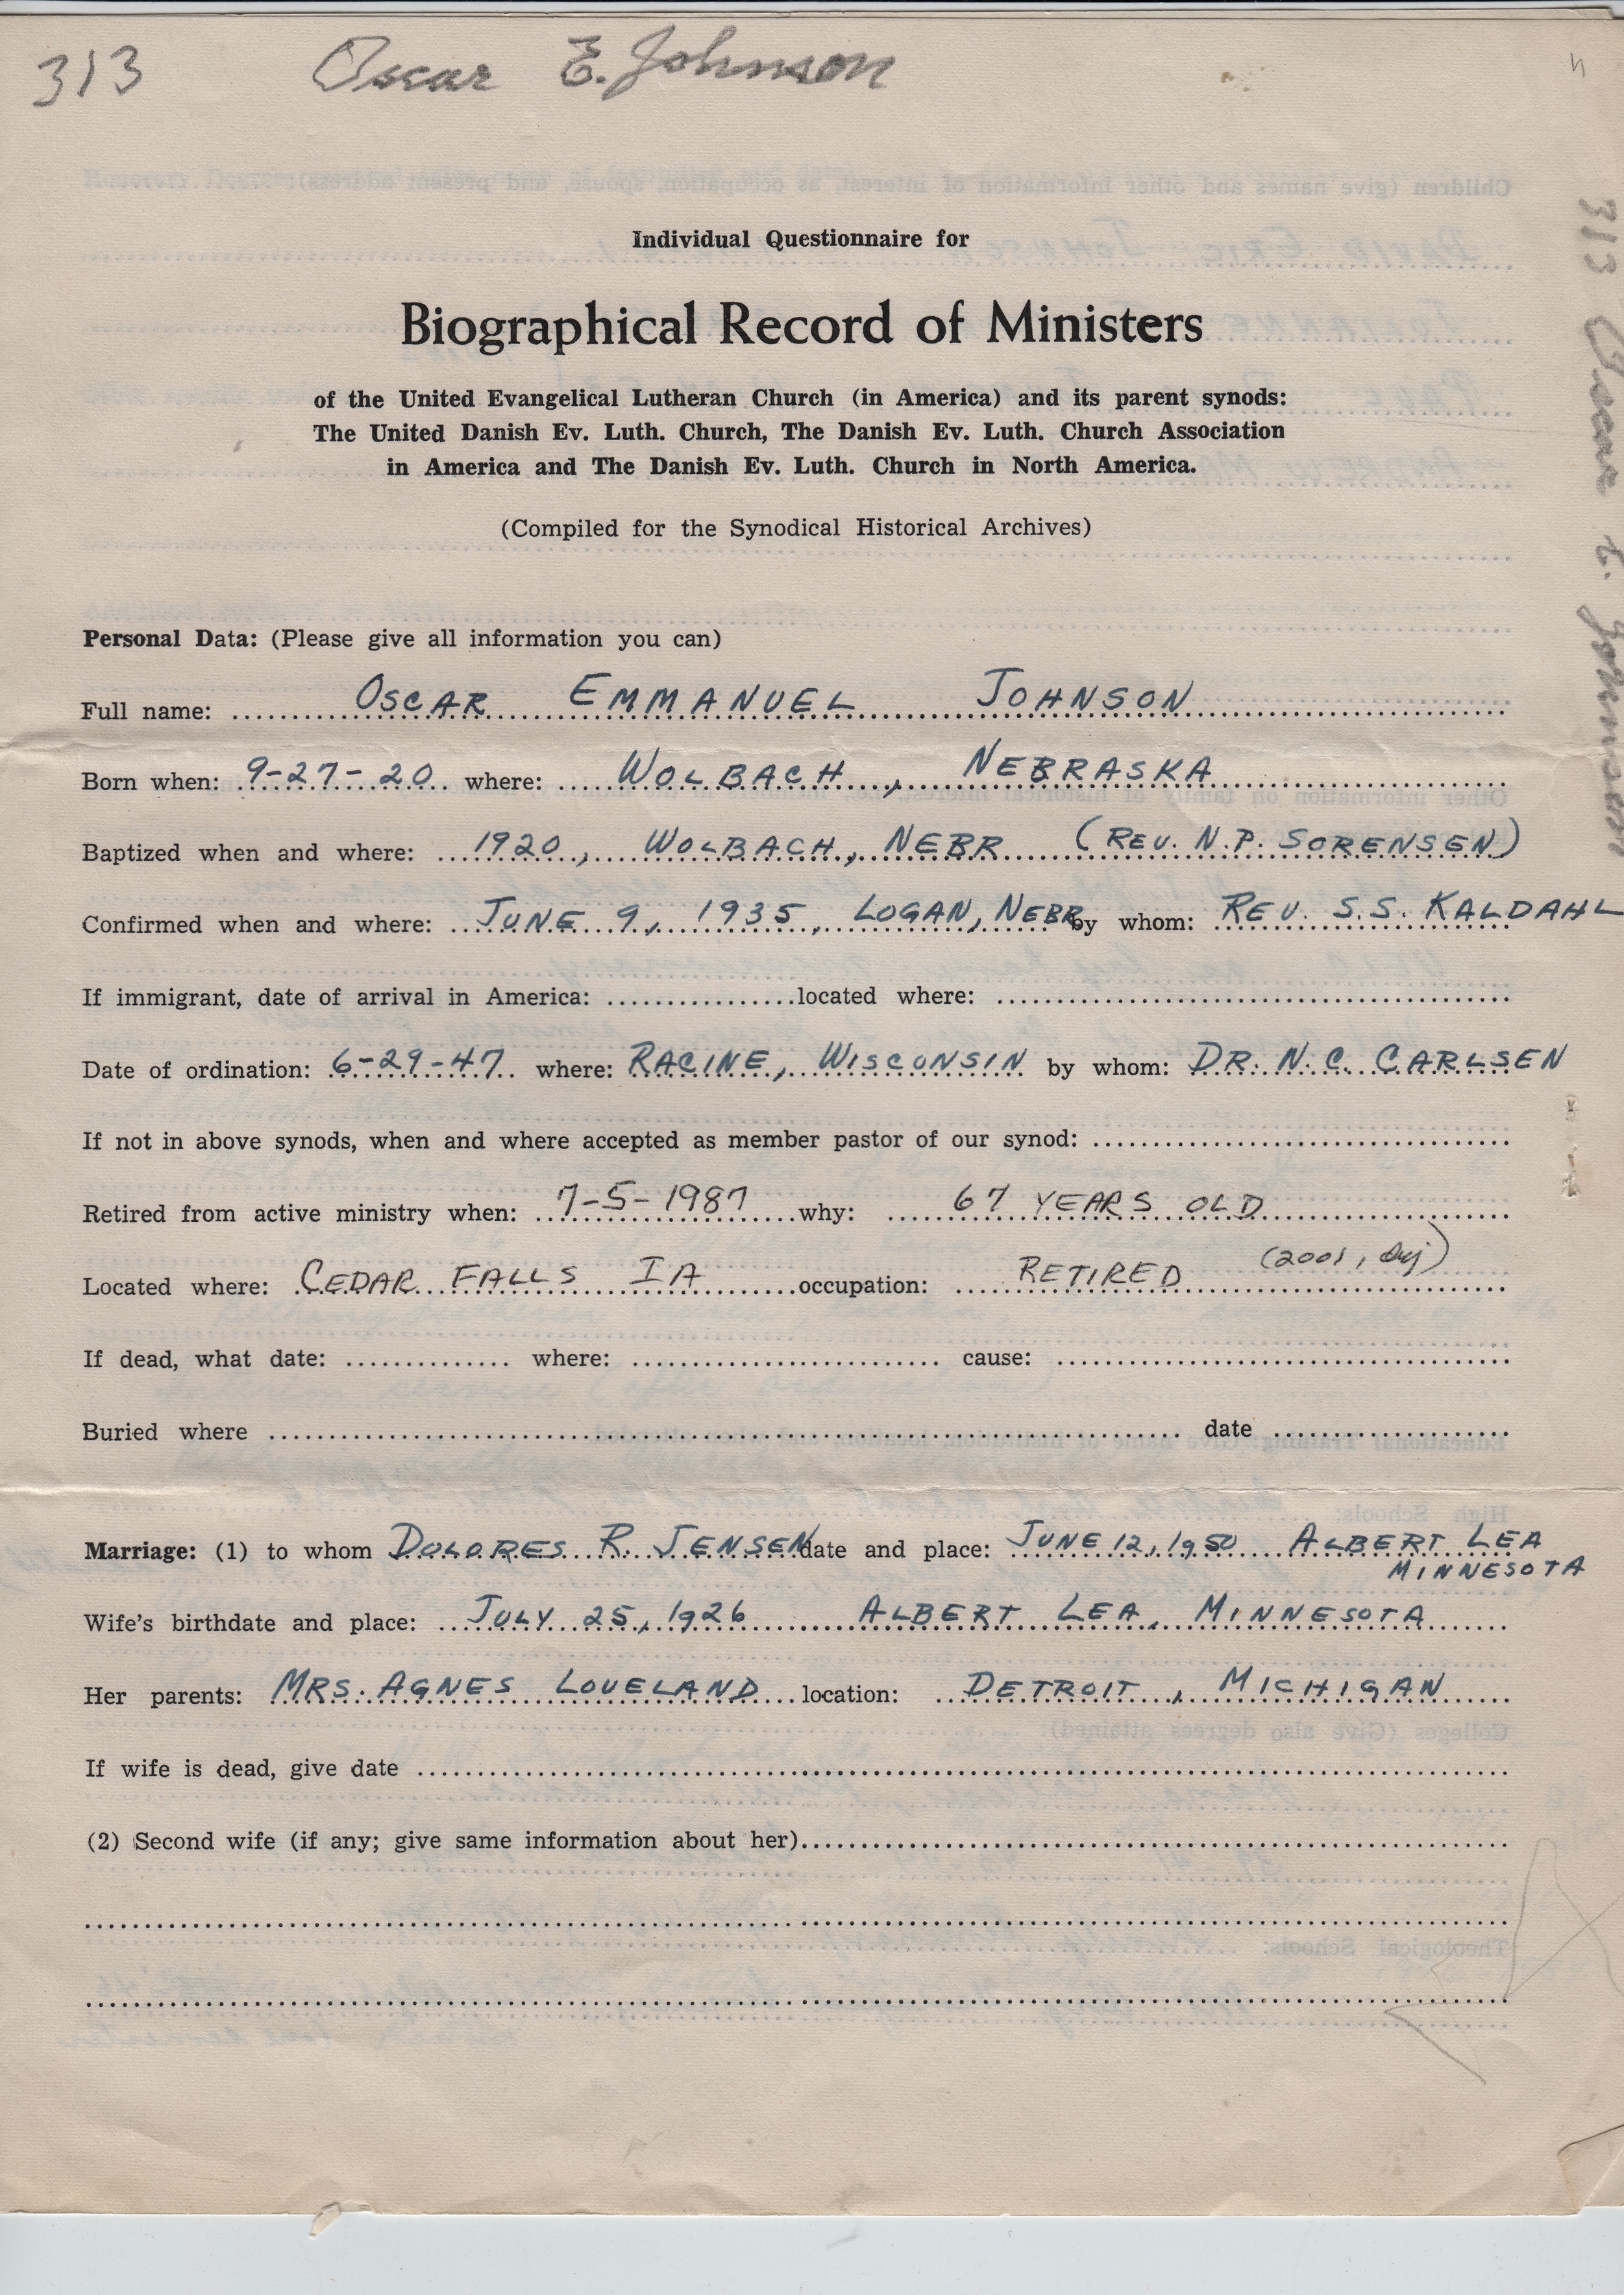 313 Oscar E. Johnson
313 Oscar E. Johnson
Individual Questionnaire for
Biographical Record of Ministers
of the United Evangelical Lutheran Church (in America) and its parent synods:
The United Danish Ev. Luth. Church, The Danish Ev. Luth. Church Association
in America and The Danish Ev. Luth. Church in North America.
(Compiled for the Synodical Historical Archives)
Personal Data: (Please give all information you can)
Full name: OSCAR EMMANUEL JOHNSON
Born when: 9-27-20 where: WOLBACH, NEBRASKA
Baptized when and where: 1920, WOLBACH, NEBR (REV. N.P. SORENSEN)
Confirmed when and where: JUNE 9, 1935, LOGAN, NEBR by whom: REV. S.S. KALDAHL
If immigrant, date of arrival in America: located where:
Date of ordination: 6-29-47 where: RACINE, WISCONSIN by whom: DR. N.C. CARLSEN
If not in above synods, when and where accepted as member pastor of our synod:
Retired from active ministry when: 7-5-1987 why: 67 YEARS OLD
Located where: CEDAR FALLS IA occupation: RETIRED (2001,
If dead, what date: where: cause:
Buried where date
Marriage: (1) to whom DOLORES R. JENSEN date and place: JUNE 12, 1950 ALBERT LEA
MINNESOTA
Wife's birthdate and place: JULY 25, 1926 ALBERT LEA, MINNESOTA
Her parents: MRS. AGNES LOVELAND location: DETROIT, MICHIGAN
If wife is dead, give date
(2) Second wife (if any; give same information about her)